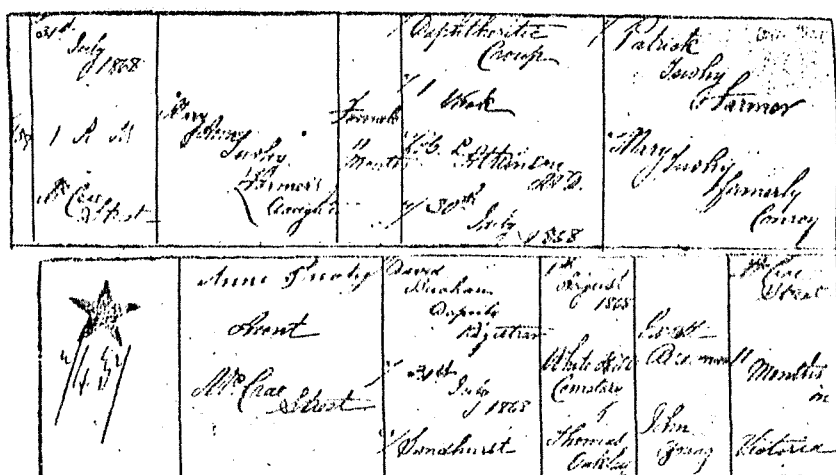 31st
July
1868
1 A M
McCrae
Street
Mary
Tuohy
Farmer's
Female
11
Months
Croup
1 Week
Atkinson
M.D.
30th
July 1868
Patrick
Tuohy
Farmer
Mary Tuohy
formerly
Conroy
Anne Tuohy
Aunt
McCrae
Street
David
Buchan
Deputy
Registrar
31st
July
1868
Sandhurst
1st
August
1868
White Hills
Cemetery
Thomas
Oakley
John
McCrae
Street
11
Months
in
Victoria